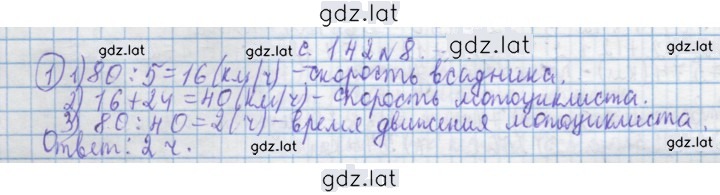 gdz.lat
gdz.lat с. 142 №8. gdz.lat
1) 1) 80 : 5 = 16 (км/ч) – скорость всадника.
2) 16 + 24 = 40 (км/ч) – скорость мотоциклиста.
3) 80 : 40 = 2 (ч) – время движения мотоциклиста.
Ответ: 2 ч. gdz.lat gdz.lat
gdz.lat